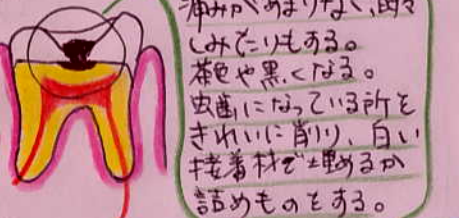 痛みがあまりなく、時々
しみたりもする。
茶色や黒くなる。
虫歯になっている所を
きれいに削り、白い
接着材で埋めるか
詰めものをする。